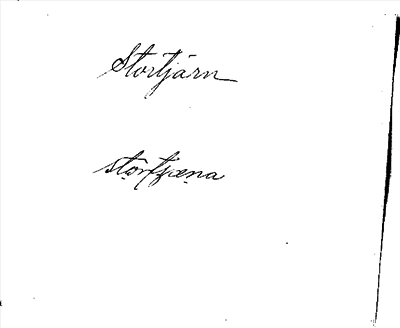 Stortjärn
stọrtjæṇa